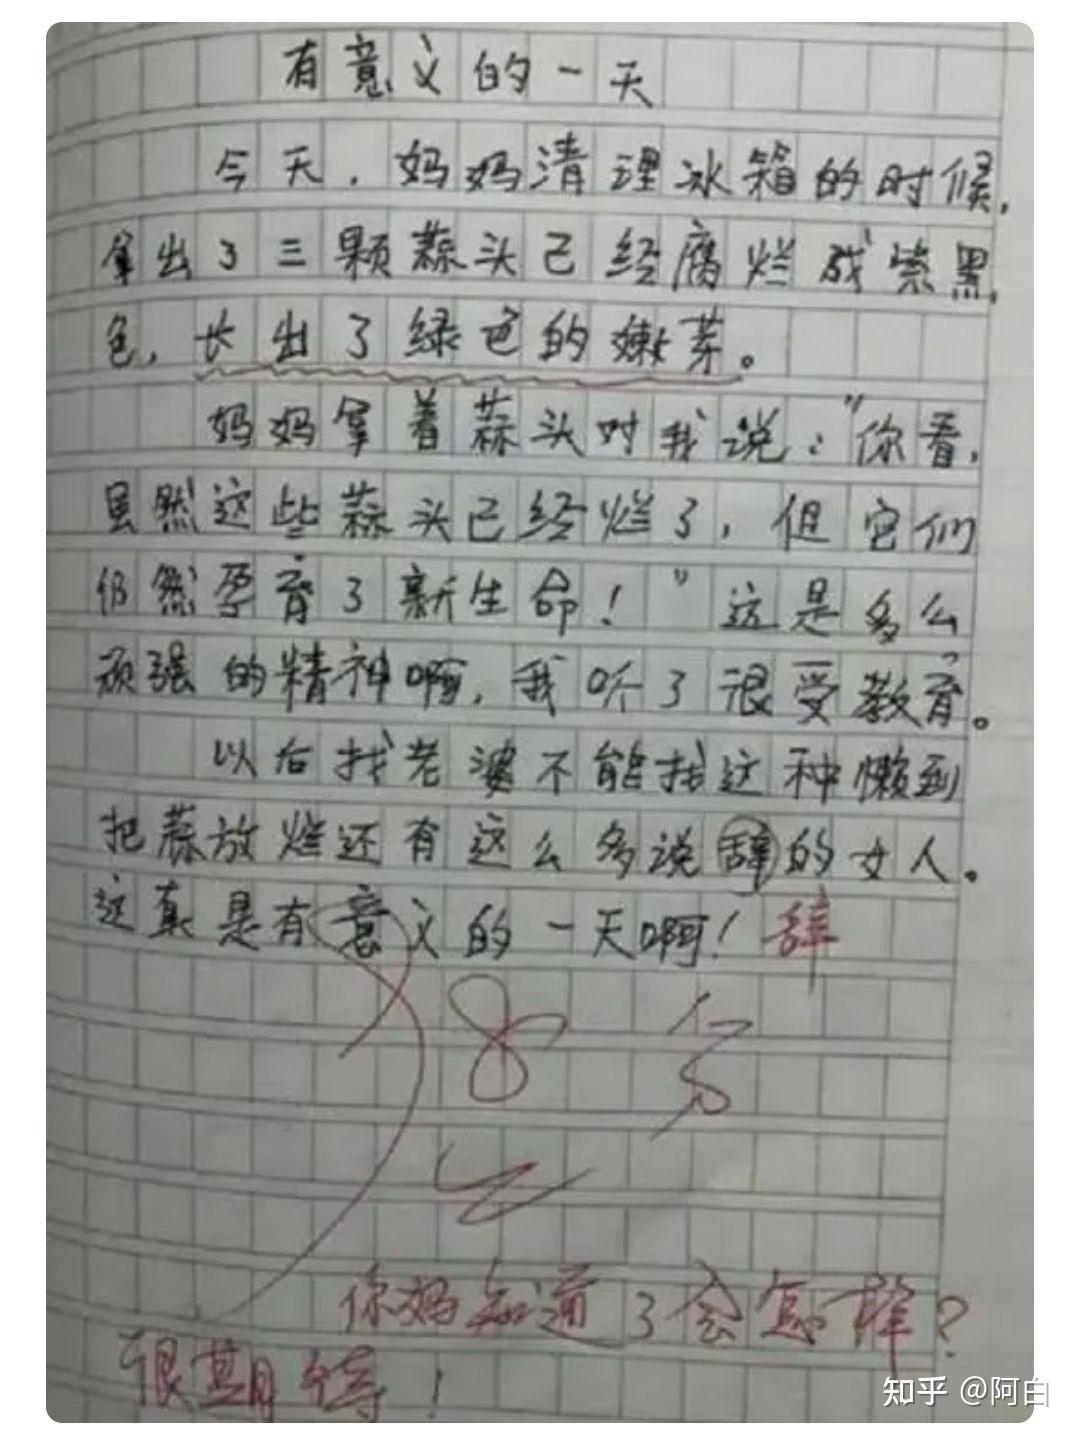 有意义的一天
今天，妈妈清理冰箱的时候，
拿出了三颗蒜头已经腐烂成紫黑
色，长出了绿色的嫩芽。
妈妈拿着蒜头对我说：“你看，
虽然这些蒜头已经烂了，但它们
仍然孕育了新生命！”这是多么
顽强的精神啊，我听了很受教育。
以后找老婆不能找这种懒到
把蒜放烂还有这么多说辞的女人。
这真是有意义的一天啊！辞
98分
你妈知道了会怎样？
很期待！
知乎 @阿白